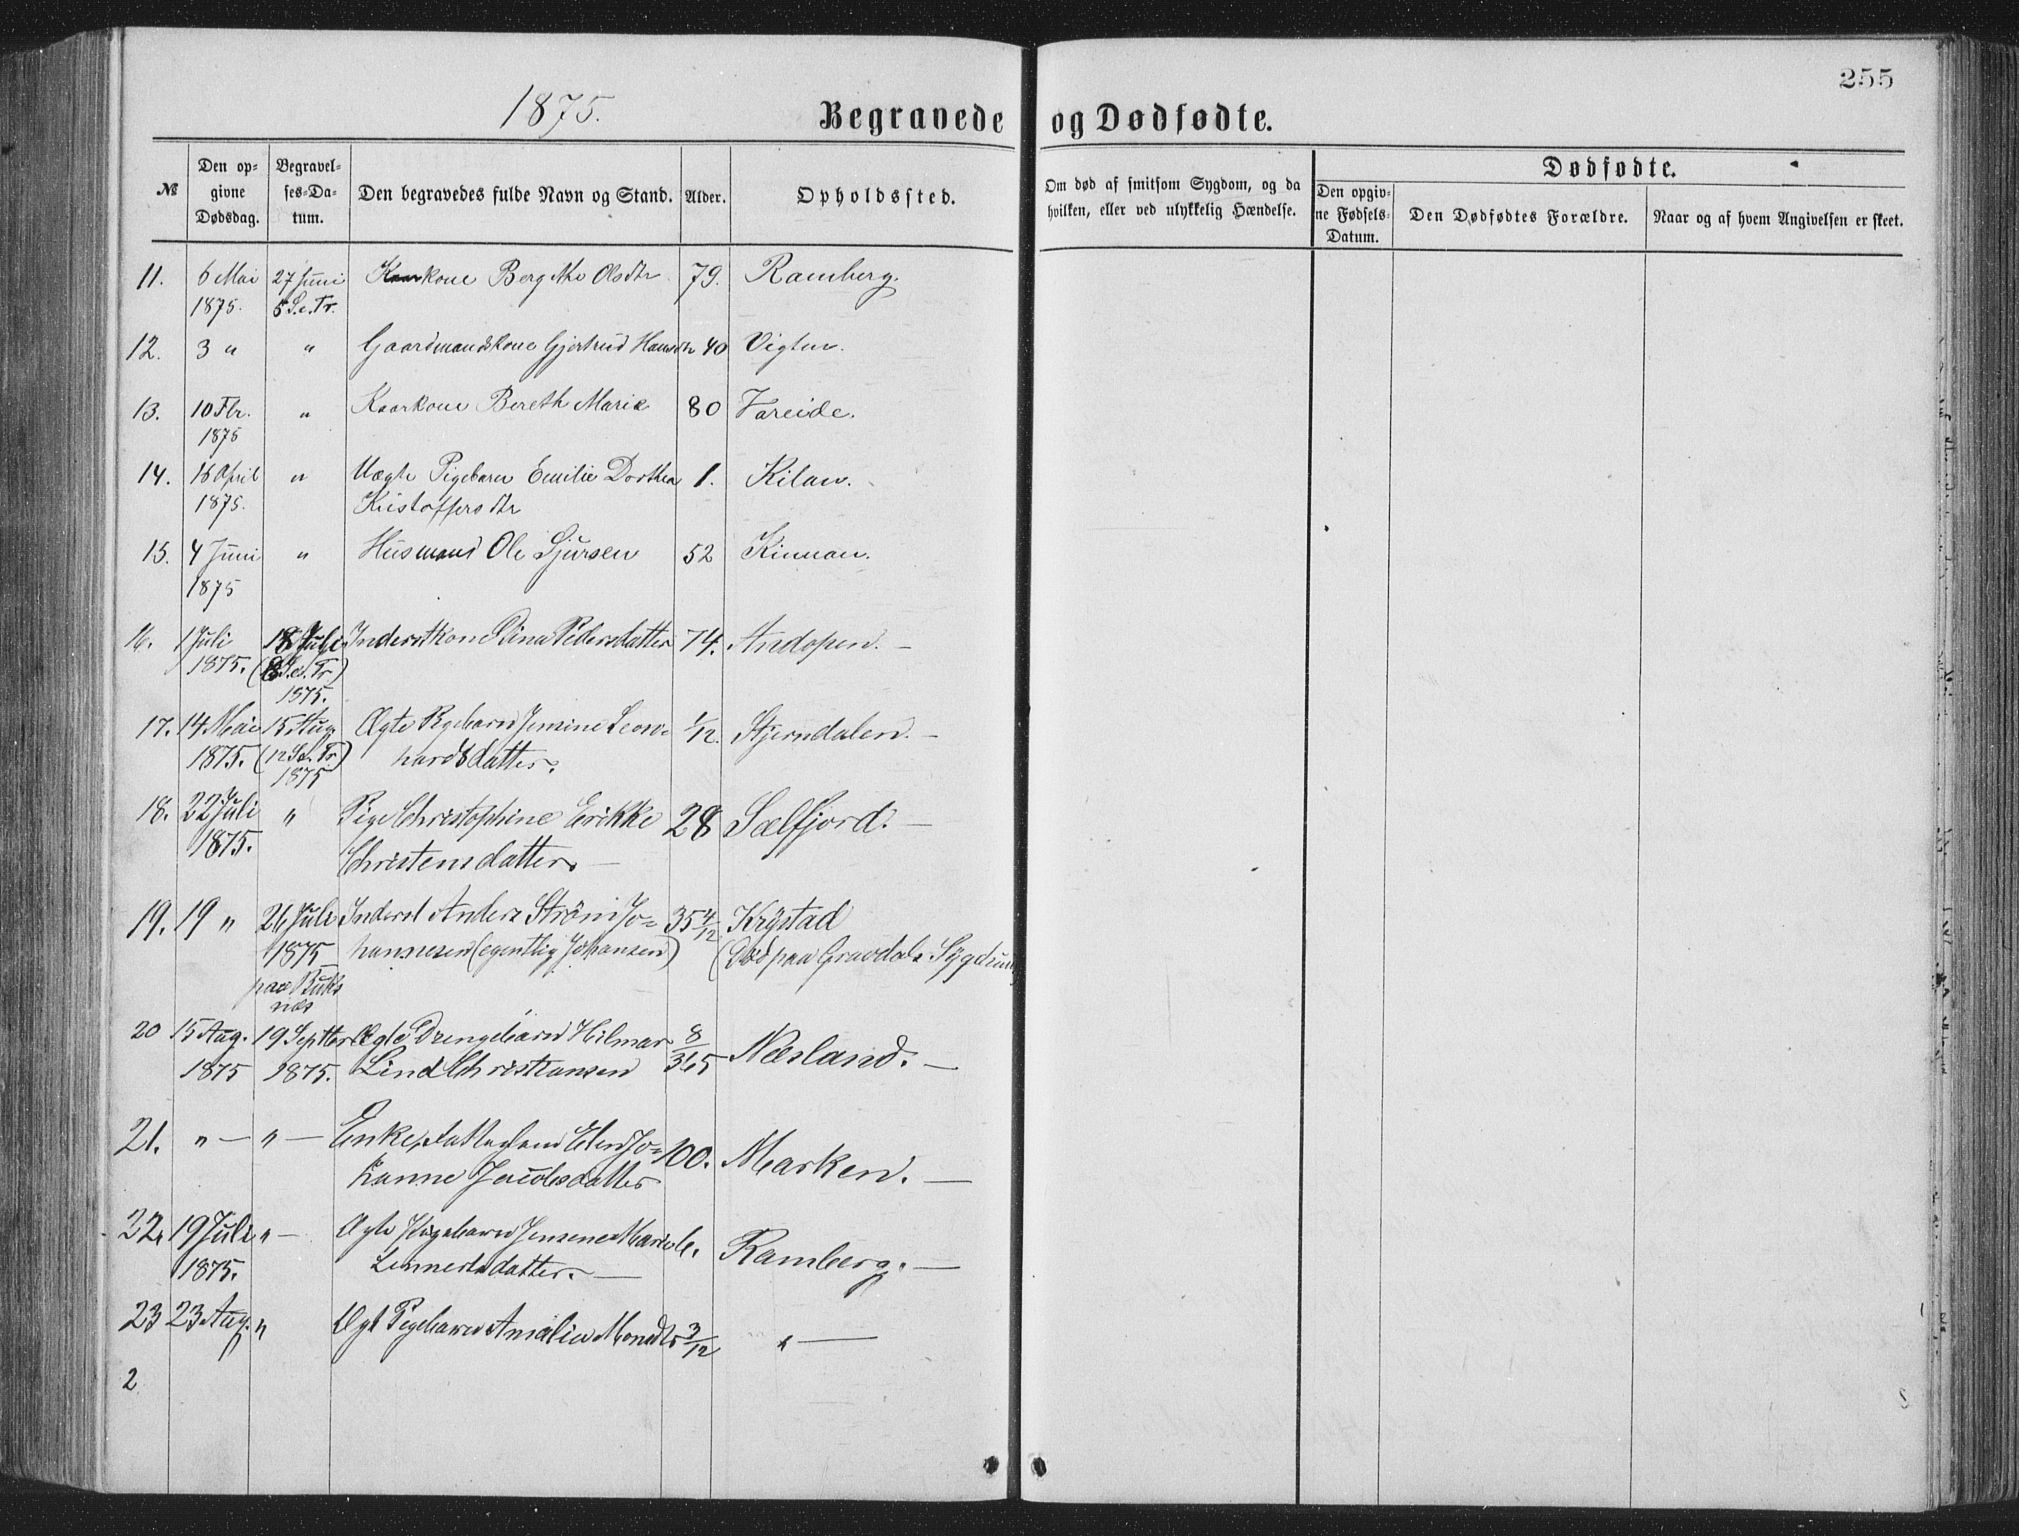 255
1875.
Begravede og Dødfødte.
№
Den opgivne Dødsdag.
Begravelses-Datum.
Den begravedes fulde Navn og Stand.
Alder.
Opholdssted.
Om død af smitsom Sygdom, og da hvilken, eller ved ulykkelig Hændelse.
Dødfødte.
Den opgivne Fødsels-Datum.
Den Dødfødtes Forældre.
Naar og af hvem Angivelsen er skeet.
11. 6 Mai 27 Juni kone Berg Olsdtr 79. Ramberg.
1875. 5 S.e.Tr.
12. 3 " " Gaardmandskone Gjertrud Hansdtr 40 Vigten.
13. 10 Fbr. " Kaarkone Bereth Marie 80 Vareide.
1875
14. 16 April " Uægte Pigebarn Emilie Dorthea 1. Kilan.
1875. Kristoffersdtr
15. 4 Juni " Husmand Ole Sjursen 52 Kinnan.
1875
16. 1 Juli 18 Juli Inderstkone Dina Pedersdatter 74. Andopen. —
1875. (8 S.e.Tr.)
1875.
17. 14 Mai 15 Aug. Ægte Pigebarn Jensine Leon- 1/12. Stjerndalen. —
1875. (12 S.e.Tr.) hardsdatter.
1875
18. 22 Juli " Pige Christophine Erikke 28 Sælfjord. —
1875. Christensdatter. —
19. 19 " 26 Juli Inderst Anders Strøm Jo- 35 4/12 Krystad
1875 hannesen (egentlig Johansen) (Død paa Gravdals
paa Buks
næs
20 15 Aug. 19 Septbr Ægte Drengebarn Hilmar 8/365 Næsland. —
1875 1875. Lind Christiansen
21. " — " — Enke, Fattiglem Elen Jo- 100. Marken. —
hanne Jacobsdatter
22. 19 Juli " — Ægte Pigebarn Jensine Marie Ramberg. —
1875. Lennertsdatter. —
23 23 Aug. " Ægt Pigebarn Amalie Monsdtr 3/12 " —
2